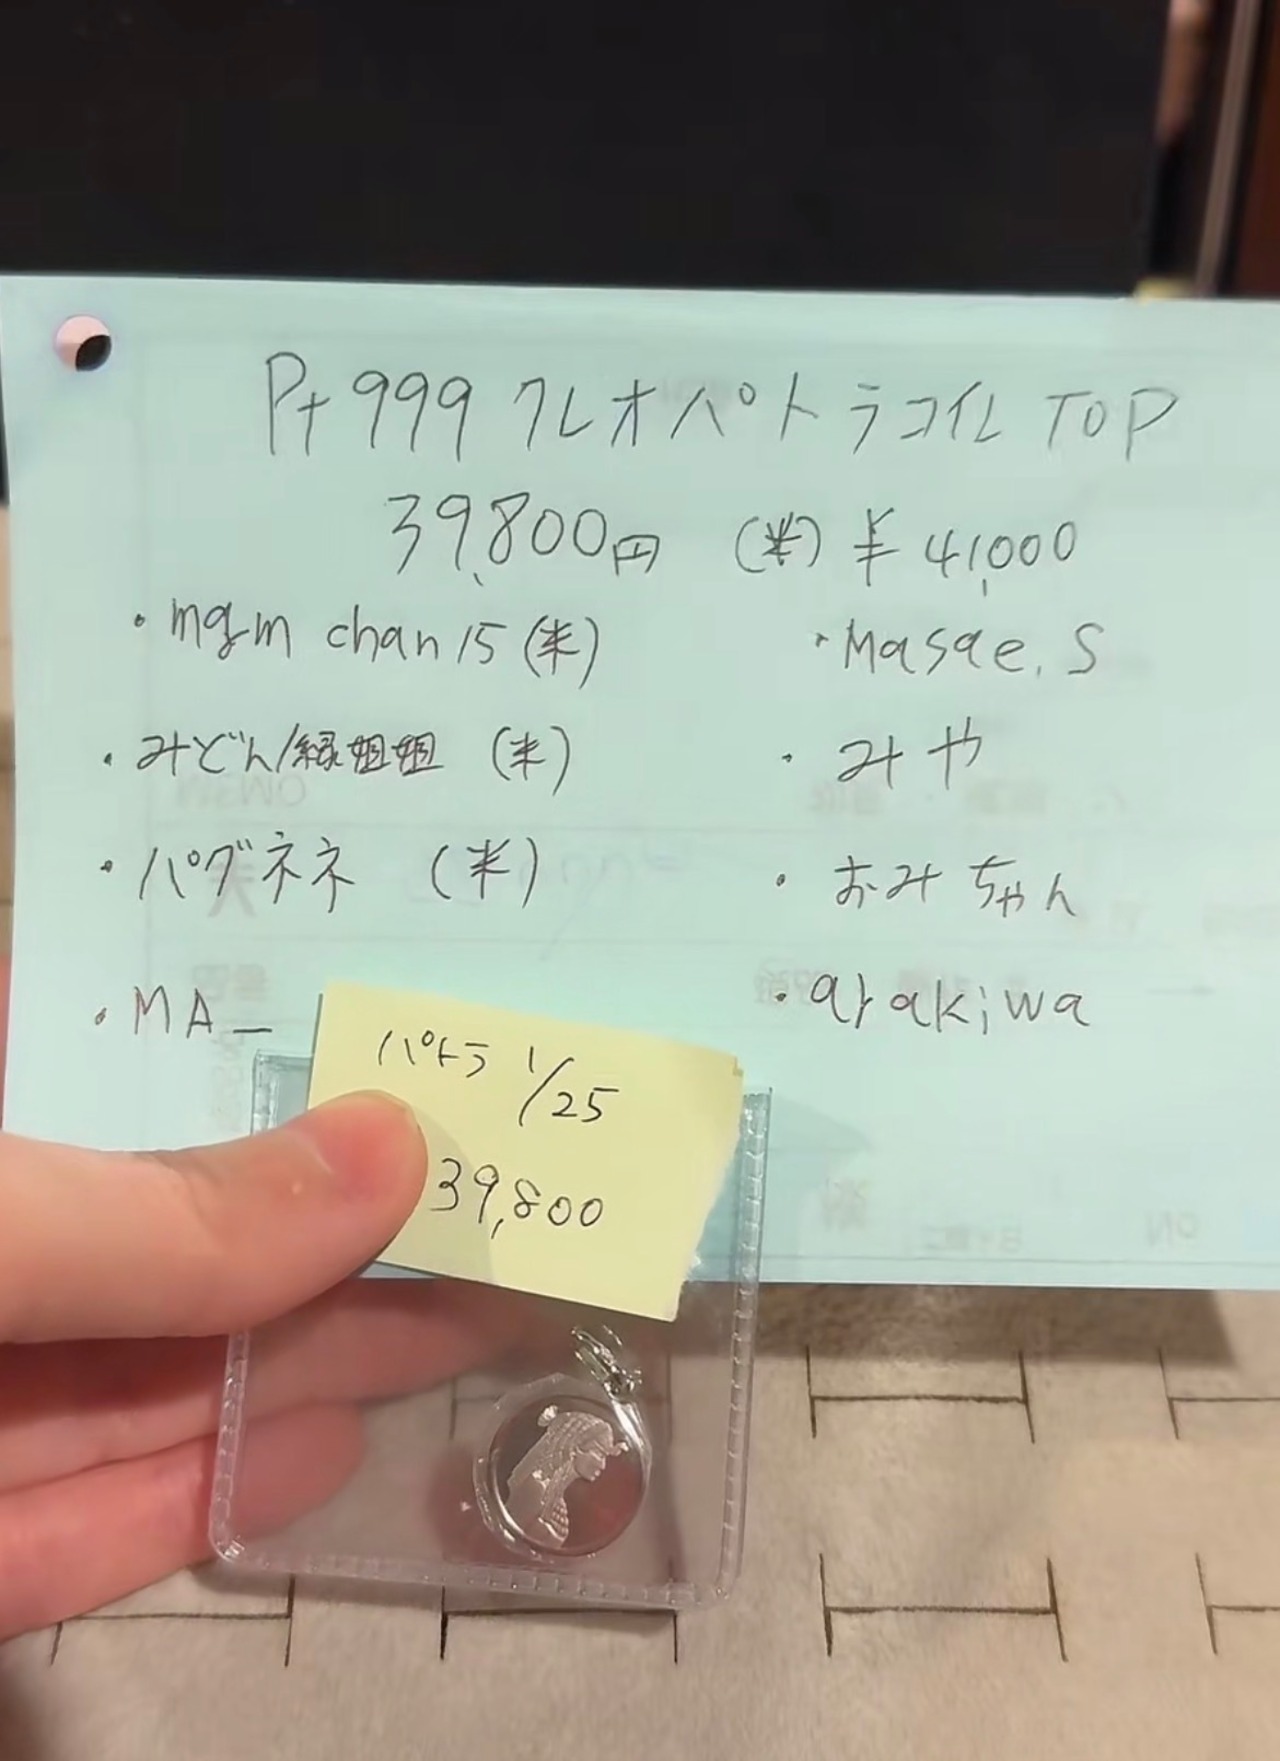 Pt999 クレオパトラコイル TOP
39,800円 (半) ¥41,000
・mgm chan15 (半)
・Masae.S
・みどん/緑姐姐 (半)
・みや
・パグネネ (半)
・おみちゃん
・MA_
・arakiwa
パトラ 1/25
39,800